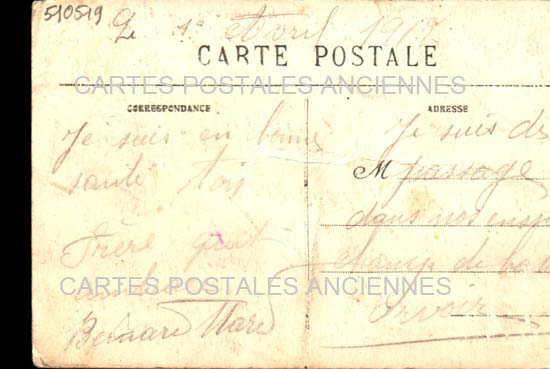 510519
Le 1º Avril 1917
CARTE POSTALE
CARTES POSTALES ANCIENNES
CORRESPONDANCE
Je suis en bonne
santé tois
Frère
Bernard
ADRESSE
Je suis de
M passage
dans nos
champ de
CARTES POSTALES ANCIENNES
Orvoir